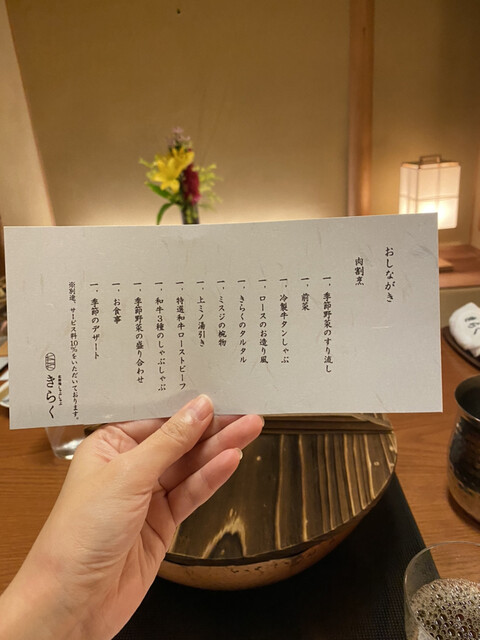 おしながき
肉割烹
一、季節野菜のすり流し
一、前菜
一、冷製牛タンしゃぶ
一、ロースのお造り風
一、きらくのタルタル
一、ミスジの椀物
一、上ミノ湯引き
一、特選和牛ローストビーフ
一、和牛3種のしゃぶしゃぶ
一、季節野菜の盛り合わせ
一、お食事
一、季節のデザート
※別途、サービス料10%をいただいております。
きらく